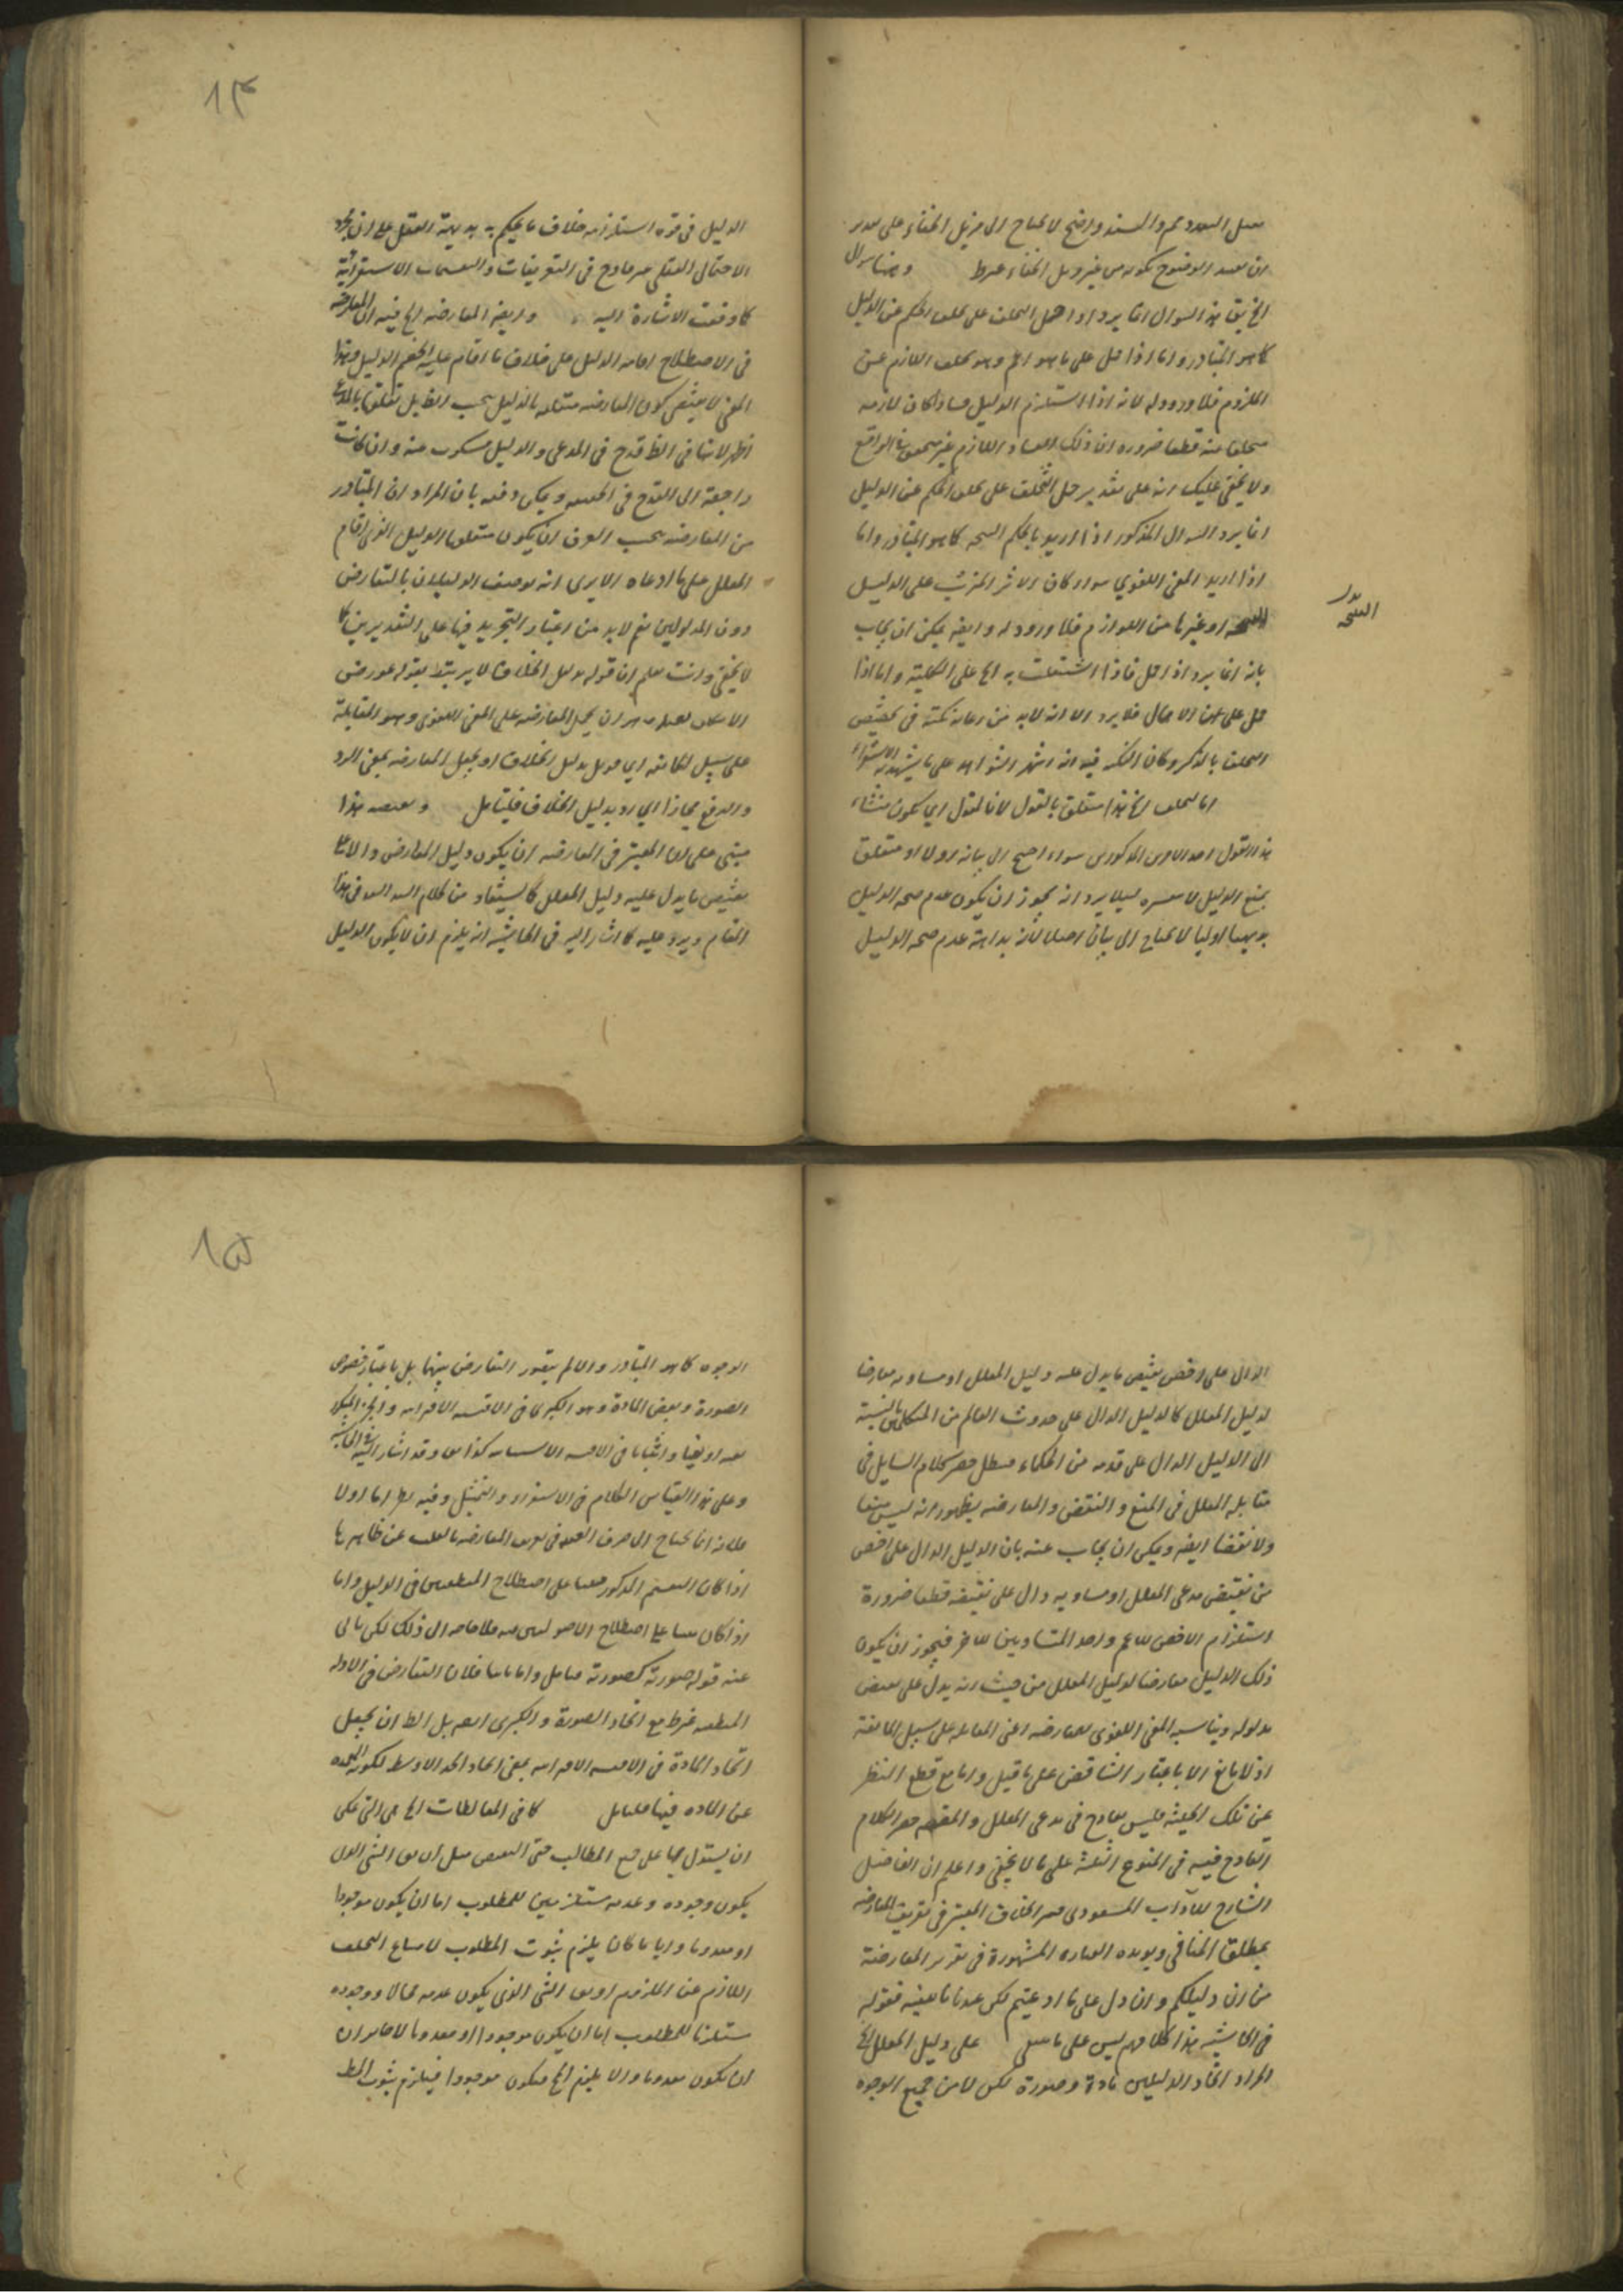 معل السعدد مم والسند واضح لا يحتاج الى مزيل الخفاء على
ان بعد الوضوح كونه من غير دليل الخفاء
الخ يق هذا السوال انما يرد اذا حمل التخلف على تخلف الحكم عن الدليل
كما هو المتبادر واما اذا حمل على ما هو اعم وهو تخلف اللازم عن
الملزوم فلا ورود له لانه اذا استلزم الدليل فسادا كان لازمه
متخلفا عنه قطعا ضرورة ان ذلك الفساد اللازم غير متحقق في الواقع
ولا يخفى عليك انه على تقدير حمل التخلف على تخلف الحكم عن الدليل
انما يرد السوال المذكور اذا اريد بالحكم النتيجه كما هو المتبادر واما
اذا اريد المعنى اللغوي سواء كان الاثر المترتب على الدليل
النتيجة او غيرها من اللوازم فلا ورود له وايضه يمكن ان يجاب
بدل النتيجه
بانه انما يرد اذا حمل فاذا اشتغلت به الخ على الكلية واما اذا
حمل على الاهمال فلا يرد الا انه لابد من رعاية نكتة في تخصيص
التخلف بالذكر وكان النكته فيه انه اشهر الشواهد على ما يشهد به الاستقراء
اما متعلق بالقول لانا نقول اي يكون منشاء
هذا القول احد الامرين المذكورين سواء احتيج الى بيانه اولا او متعلق
بمنع الدليل لا يرد انه يجوز ان يكون عدم صحه الدليل
بديهيا اوليا لا يحتاج الى بيان اصلا لان بداهة عدم صحه الدليل
١٤
الدليل في قوة استلزامه خلاف ما يحكم به بديهية العقل على ان مجرد
الاحتمال العقلي غير قادح في التعريفات والتقسيمات الاستقرائية
كما وقعت الاشارة اليه وايضه المعارضه الخ فيه ان المعارضه
في الاصطلاح اقامه الدليل على خلاف ما اقام عليه الخصم الدليل وهذا
المعنى لا يقتضي كون المعارضه متعلقه بالدليل بحسب الظ بل تعلقها بالمدعى
اظهر لانها في الظ قدح في المدعى والدليل مسكوت عنه وان كانت
راجعة الى القدح في الحقيقه ويمكن دفعه بان المراد ان المتبادر
من المعارضه بحسب العرف ان يكون متعلقا بالدليل الذي اقام
المعلل على ما ادعاه الا يرى انه يوصف الدليلان بالتعارض
دون المدلولين نعم لابد من اعتبار التجريد فيها على التقديرين كما
لا يخفى وانت تعلم ان قوله بدليل الخلاف لا يرتبط بقوله عورض
الا ان يجعل المعارضه على المعنى اللغوي وهو المقابلة
على سبيل الممانعه اي قوبل بدليل الخلاف او يجعل المعارضه بمعنى الرد
والدفع مجازا اي رد بدليل الخلاف فليتامل ونقيضه هذا
مبنى على ان المعتبر في المعارضه ان يكون دليل المعارض دالا على
نقيض ما يدل عليه دليل المعلل كما يستفاد من كلام السيد السند في هذا
المقام ويرد عليه كما اشار اليه في الحاشيه انه يلزم ان لا يكون الدليل
الدال على اخص من نقيض ما يدل عليه دليل المعلل او مساويه معارضا
لدليل المعلل كالدليل الدال على حدوث العالم من المتكلمين بالنسبة
الى الدليل الدال على قدمه من الحكماء فيبطل حصر كلام السايل في
مقابله المعلل في المنع والنقض والمعارضه بظهور انه ليس منعا
ولا نقضا ايضه ويمكن ان يجاب عنه بان الدليل الدال على اخص
من نقيض مدعى المعلل او مساويه دال على نقيضه قطعا ضرورة
استلزام الاخص للاعم واحد المتساويين للاخر فيجوز ان يكون
ذلك الدليل معارضا لدليل المعلل من حيث انه يدل على نقيض
مدلوله ويناسبه المعنى اللغوي للمعارضه اعنى المقابله على سبيل الممانعة
اذ لا تمانع الا باعتبار التناقض على ما قيل واما مع قطع النظر
عن تلك الحيثيه فليس بقادح في مدعى المعلل والمقصود حصر الكلام
القادح فيه في المنوع الثلثة على ما لا يخفى واعلم ان الفاضل
الشارح للآداب المسعودي فسر الخلاف المعتبر في تعريف المعارضه
بمطلق المنافي ويويده العباره المشهورة في تقرير المعارضة
من ان دليلكم وان دل على ما ادعيتم لكن عندنا ما ينفيه فقوله
في الحاشيه هذا كلامهم ليس على ما ينبغي على دليل المعلل الخ
المراد اتحاد الدليلين مادة وصورة لكن لا من جميع الوجوه
١٥
الوجوه كما هو المتبادر والا لم يتصور التعارض بينهما بل باعتبار خصوص
الصورة وبعض المادة وهو الكبرى في الاقيسه الاقترانيه والجزء المتكرر
نفيا واثباتا في الاقيسه الاستثنائيه كذا وقد اشار اليه في الحاشيه
وعلى هذا القياس الكلام في الاستقراء والتمثيل وفيه نظر اما اولا
فلانه انما يحتاج الى صرف العبارة في تعريف المعارضه بالقلب عن ظاهرها
اذا كان التقسيم المذكور مبنيا على اصطلاح المنطقيين في الدليل واما
اذا كان مبنيا على اصطلاح الاصوليين فيه فلا حاجه الى ذلك لكن يابى
عنه قوله صورته كصورته فتامل واما ثانيا فلان التعارض في الادله
المنطقيه مع اتحاد الصورة والكبرى بل الظ ان يجعل
اتحاد المادة في الاقيسه الاقترانيه بمعنى اتحاد الحد الاوسط لكونه العمده
عن الماده فيها فليتامل كما في المغالطات الخ هي التي يمكن
ان يستدل بها على جميع المطالب حتى النقيضين مثل ان يق الشي الذى
يكون وجوده وعدمه مستلزمين للمطلوب اما ان يكون موجودا
او معدوما وايا ما كان يلزم ثبوت المطلوب لامتناع التخلف
اللازم عن الملزوم او يق الشي الذي يكون عدمه محالا ووجوده
مستلزما للمطلوب اما ان يكون موجودا او معدوما لا جايز ان
ان يكون معدوما والا يلزم المح فيكون موجودا فيلزم ثبوت المط